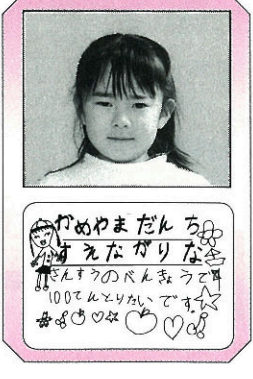 かめやまだんち
すえながりな
さんすうのべんきょうで
100てんとりたいです。